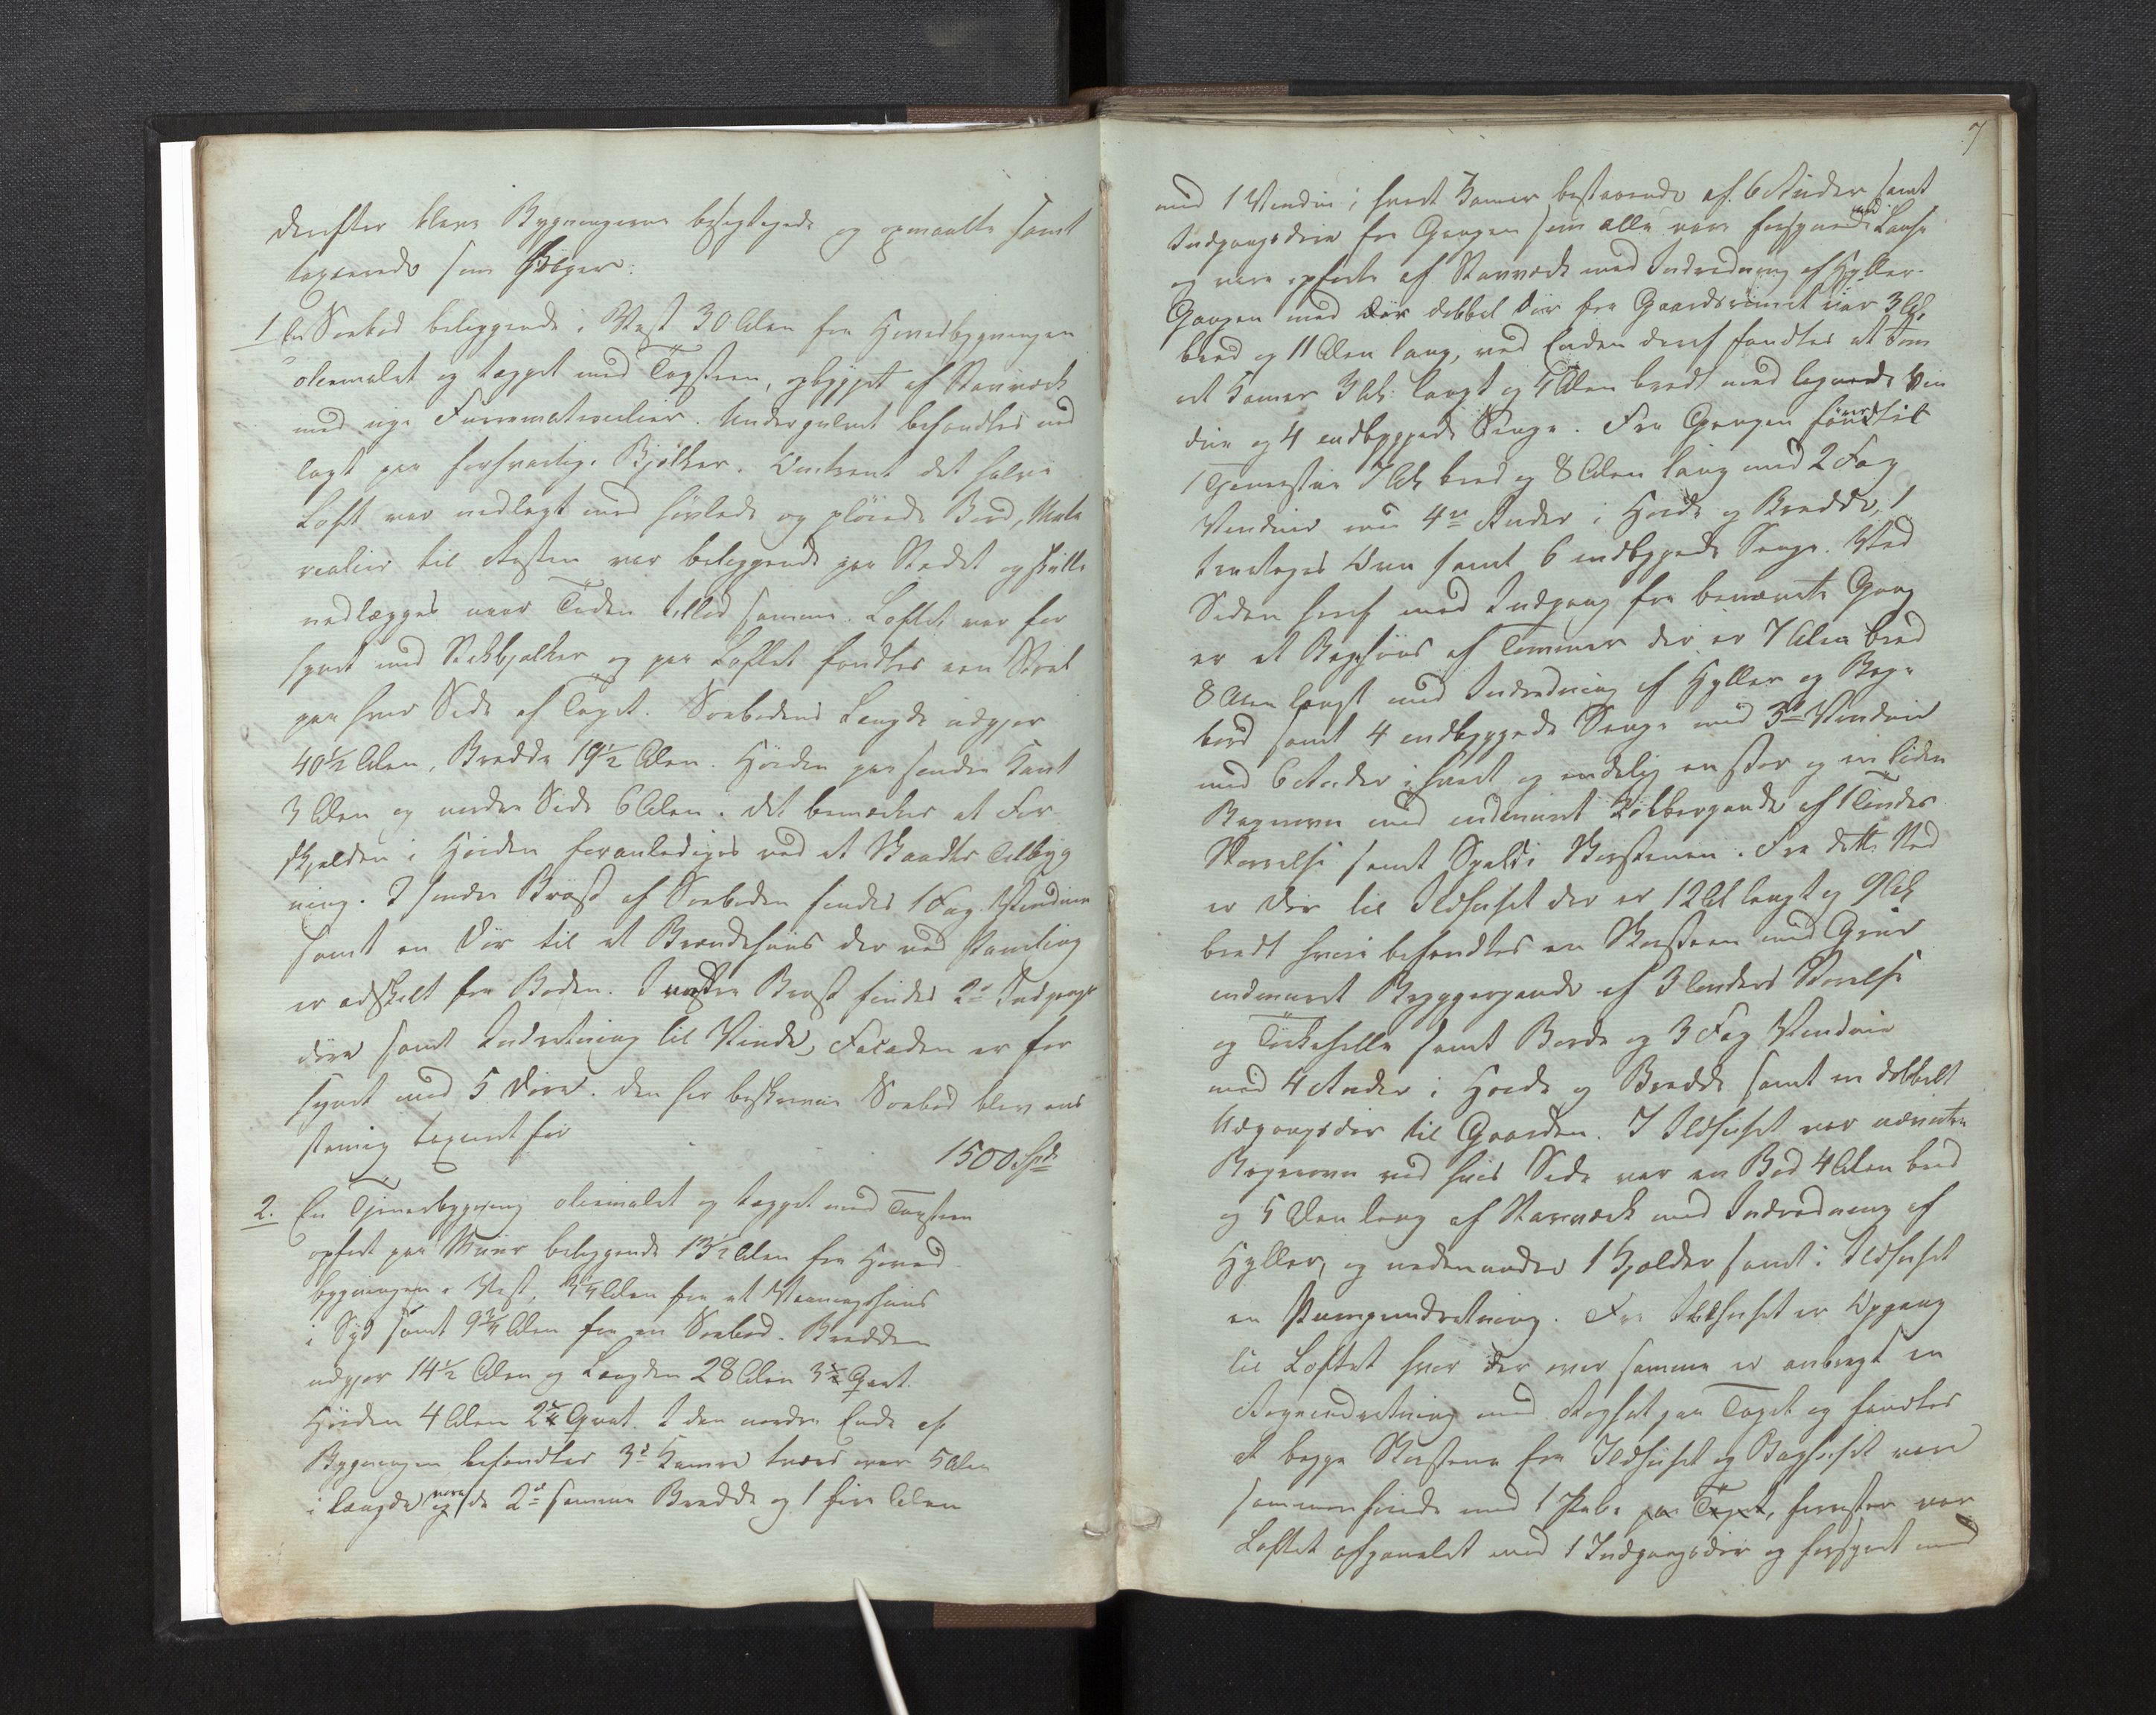 derefter bleve Bygningerne besigtigede og opmaalte samt
taxerede som følger:
1 En Søebod beliggende i Vest 30 Alen fra Hovedbygningen
oliemalet og tægget med Tagsteen, opbygget af Stavværk
med nye Furematerialier. Undergulvet befandtes ned
lagt paa forsvarlige Bjelker. Omtrent det halve
Loft var nedlagt med høvlede og pløiede Bord, Mate
rialier til Resten var beliggende paa Stedet og skulle
nedlægges naar Tiden tillod samme. Loftet var for
synet med Stikbjælker og paa Loftet fandtes een Steel
paa hver Side af Taget. Søebodens Længde udgjør
40½ Alen, Bredde 19½ Alen. Høiden paa søndre Kant
3 Alen og nordre Side 6 Alen. Det bemærkes at For-
skjellen i Høiden foranlediges ved et Skaadts Tilbyg
ning. I søndre Brøst af Søeboden findes 1 Fag Vinduer
samt en Dør til et Brændehuus der ved Paneling
er adskilt fra Boden. I vestre Brøst findes 2de Indgangs
døre samt Indretning til Vinde, Facaden er for
synet med 5 Døre. Den her beskrevne Søebod blev ens
stemig taxeret for
1500 Spd
2. En Tjenerbygning oliemalet og tægget med Tagsteen
opført paa Muur beliggende 13½ Alen fra Hoved
bygningen i Vest, 3¼ Alen fra et Vaaningshuus
i Syd samt 9¾ Alen fra en Søebod. Bredden
udgjør 14½ Alen og Længden 28 Alen 3½ Qvart.
Høiden 4 Alen 2¼ Qvart. I den nordre Ende af
Bygningen befandtes 3de Kamre tvers over 5 Alen
i Længde og vare de 2de samme Bredde og 1 fire Alen
7
med 1 Vindue i hvert Kamer bestaaende af 6 Ruder samt
Indgangsdøre fra Gangen som alle vare forsynede med Laase
og vare opførte af Stavværk med Indredning af Hyller.
Gangen med Dør dobbel Dør fra Gaardsrummet var 3 Al.
bred og 11 Alen lang, ved Enden deraf fandtes et Tøm
ret Kamer 3 Al. langt og 4 Alen bredt med liggende Vin
due og 4 indbyggede Senge. Fra Gangen førtes til
1 Tjenerstue 7 Al. bred og 8 Alen lang med 2 Fag
Vinduer med 4re Ruder i Høide og Bredde, 1
treetages Ovn samt 6 indbyggede Senge. Ved
Siden heraf med Indgang fra benævnte Gang
er et Baghuus af Tømmer der er 7 Alen bred
8 Alen langt med Indredning af Hyller og Bage
bord samt 4 indbyggede Senge med 3de Vinduer
med 6 Ruder i hvert og endelig en stor og en liden
Bagerovn med indmuret Kobbergande af 1 Tøndes
Størrelse samt Spelds Skorstenen. Fra dette Sted
er Dør til Ildhuset der er 12 Al langt og 9 Al
bredt hvori befandtes en Skorsteen med Gruve
indmuret Bryggerpande af 3 Tønders Størrelse
og Tørkehelle samt Borde og 3 Fag Vinduer
med 4 Ruder i Høide og Bredde samt en dobbelt
Udgangsdør til Gaarden. I Ildhuset var nævnte
Bagerovn ved hvis Side var en Bod 4 Alen bred
og 5 Alen lang af Stavværk med Indredning af
Hyller, og nedenunder 1 Kjælder samt i Ildhuset
en Pumpeindretning. Fra Ildhuset er Opgang
til Loftet hvor der over samme er anbragt en
Røgeindretning med Røghat paa Taget og fandtes
at begge Skorstene fra Ildhuset og Baghuset vare
sammenføiede med 1 Pibe paa Taget, forresten var
Loftet afpanelet med 1 Indgangsdør og forsynet med